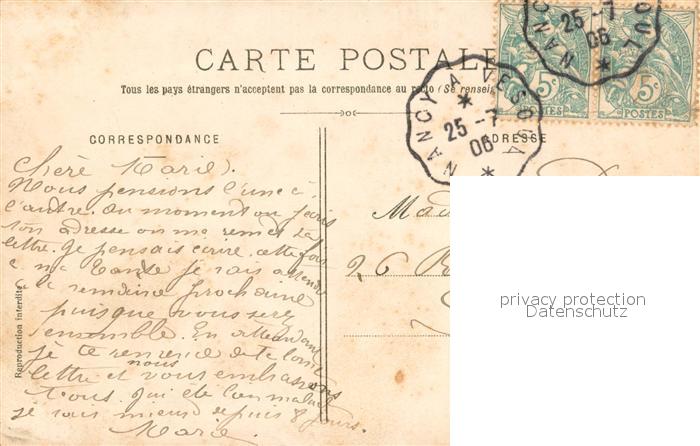 CARTE POSTALE
Tous les pays étrangers n'acceptent pas la correspondance au recto (Se rensei
CORRESPONDANCE
ADRESSE
NANCY A VESOUL
25 -7
06
NANCY A VESOUL
25 -7
06
5c
POSTES
5c
POSTES
Chère Marie).
Nous pensions l'une à
l'autre. Au moment où
ton adresse on me remet ta
lettre. Je pensais écrire cette fois
a ma tante je vais attendre
la semaine prochaine
puisque vous serez
ensemble. En attendant
je te remercie de ta
nous
lettre et vous embrassons
tous. J'ai été
je suis mieux depuis 8 jours.
Marie.
Mad
26
Reproduction interdite
privacy protection
Datenschutz